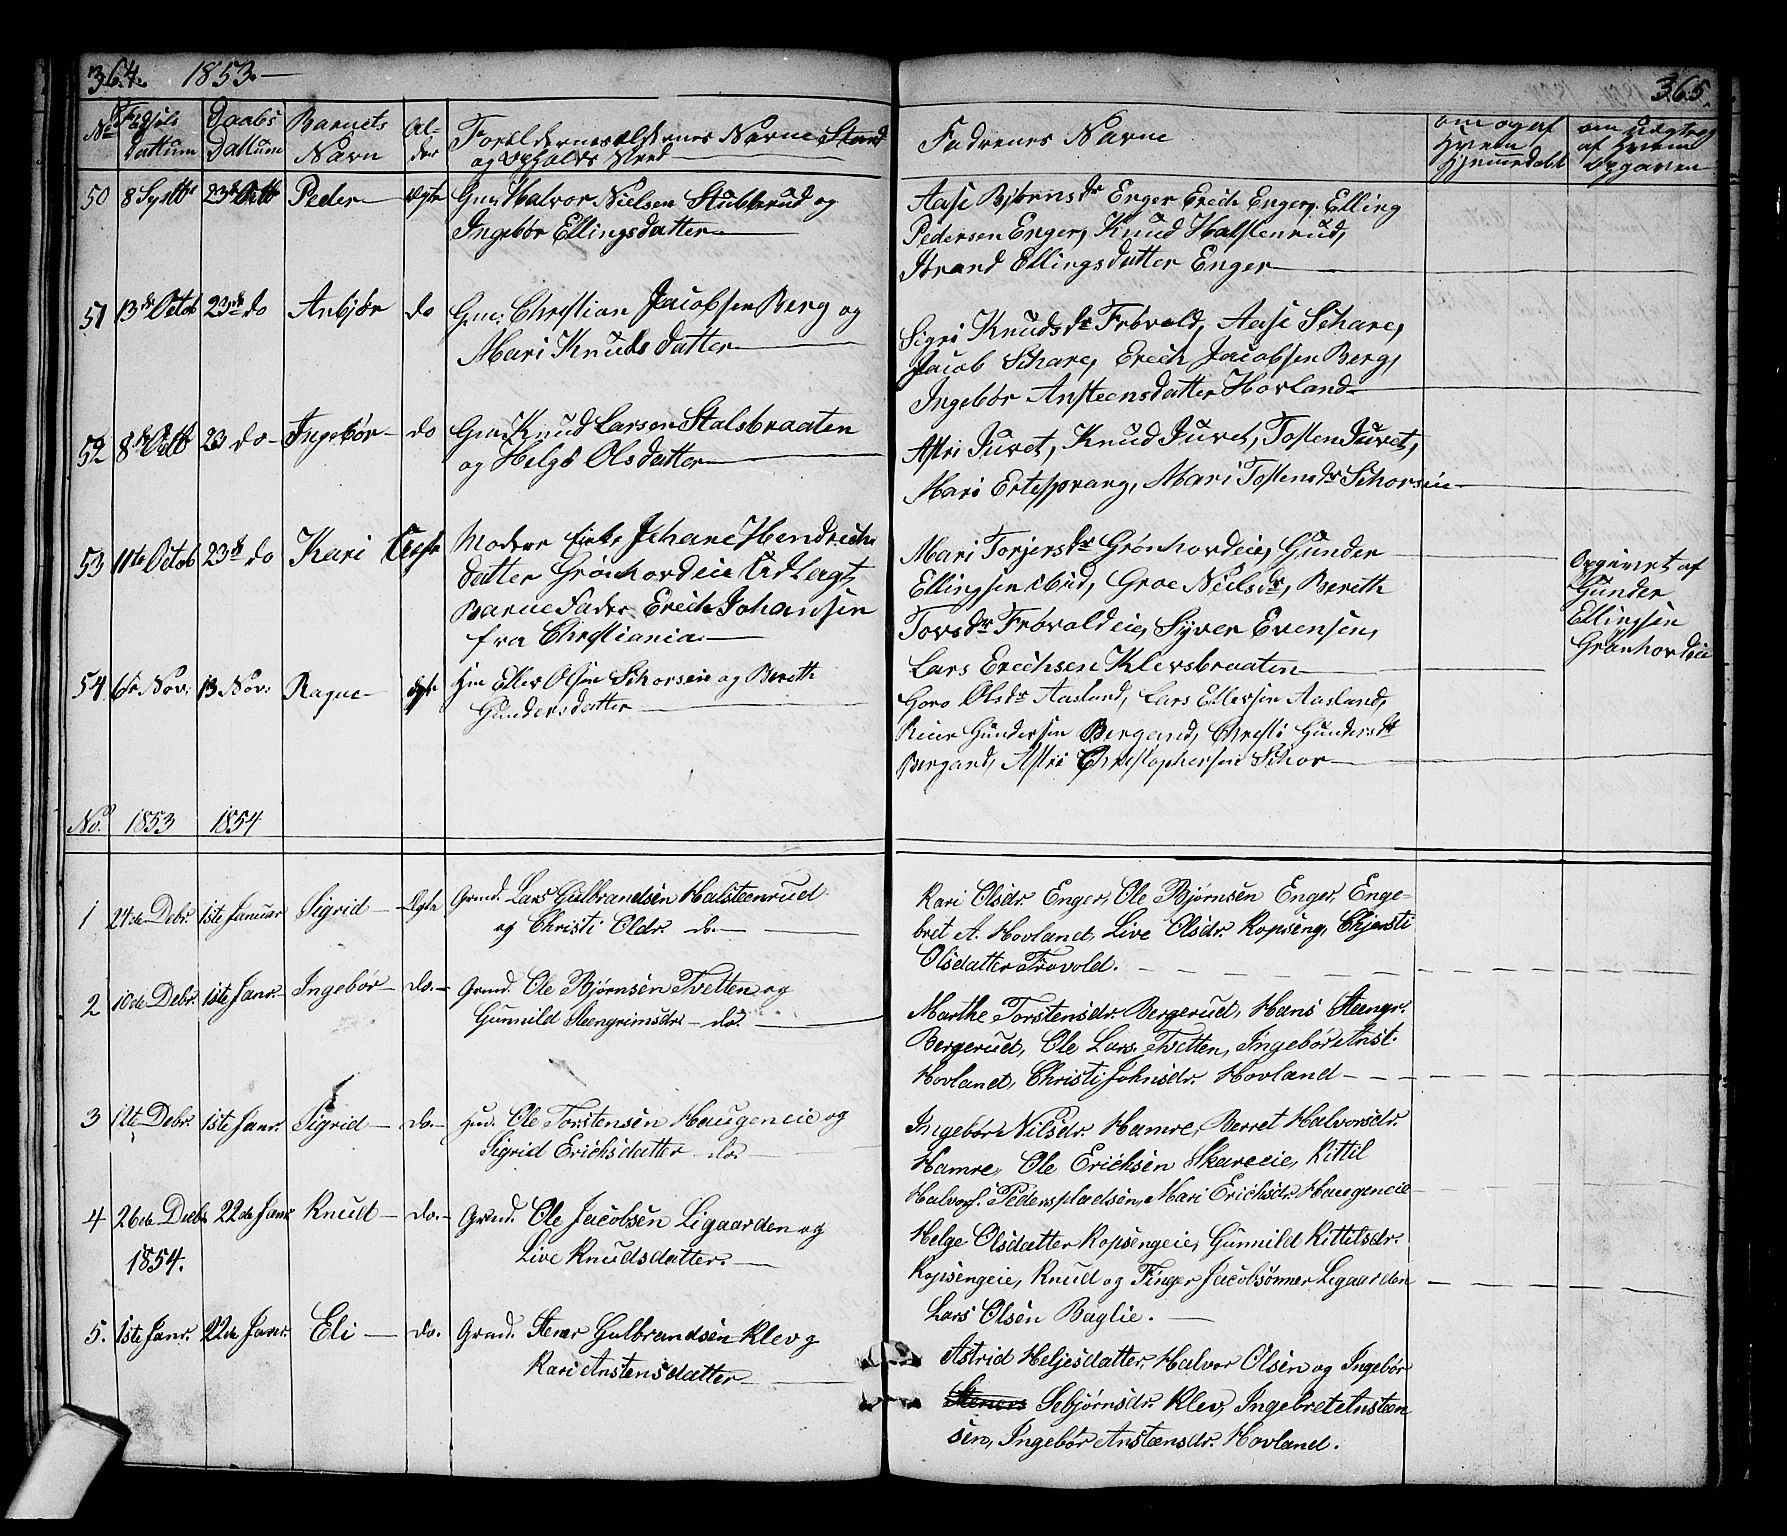 364. 1853 —
365.
No Fødsels Dattum Daabs Dattum Barnets Navn Al- der Forældernes Navne Stand og Opholds Sted
Fadrenes Navne
om og af Hvem Hjemmedøbt
om Udgtog af Hvem Opgaven
50 8 Sept 23de Octb Peder ægte Gm: Halvor Nielsen Stubberud og
Ingebør Ellingsdatter
Aase Bjørnsdr Enger Erich Enger, Elling
Pedersen Enger, Knud Halstenrud,
Strand Ellingsdatter Enger
51 13de Octob 23de do Anbjør do Gm: Christian Jacobsen Berg og
Mari Knuds datter
Sigri Knudsdr Frøvold, Aase Schare,
Jacob Schare, Erich Jacobsen Berg,
Ingebør Ansteensdatter Hovland
52 8de Octb 23 do Ingebør do Gm Knud Larsen Stalsbraaten
og Helge Olsdatter
Astri Juvet, Knud Juvet, Tosten Juvet,
Mari Ertesprang, Mari Tostensdr Schorseie
53 11te Octob 23de do Kari Uægte Moder Pike Johane Hendrich
datter Grønhovdeie Udlagt
Barne Fader Erich Johansen
fra Christiania
Mari Torjersdr Grønhovdeie, Gunder
Ellingsen ibid, Groe Nielsdr, Bereth
Tovsdr Frøvoldeie, Syver Evensen,
Lars Erichsen Klevsbraaten
Opgivet af
Gunder
Ellingsen
Grønhovdeie
54 6te Nov: 13 Nov: Rague ægte Hm Eller Olsen Schorseie og Bereth
Gundersdatter
Goro Olsdr Aasland, Lars Ellersen Aasland,
Reier Gundersen Bergand, Christi Gundersdr
Bergand, Astri Christophersen Schor
No. 1853 1854
1 24de Debr. 1ste Januar Sigrid Ægte Grmd. Lars Gulbrandsen Halsteenrud
og Christi Oldr. do.
Kari Olsdr. Enger, Ole Bjørnsen Enger, Enge-
bret A. Hovland, Live Olsdr. Ropseng, Chjersti
Olsdatter Frøvold.
2 10de Debr. 1ste Janr. Ingebør do. Grmd. Ole Bjørnsen Tvetten og
Gunnild Steengrimsdr. do.
Marthe Torstensdr. Bergerud, Hans Steengr.
Bergerud, Ole Lars. Tvetten, Ingebør Anst.
Hovland, Christi Johnsdr. Hovland
3 12te Debr. 1ste Janr. Sigrid do. Hmd. Ole Torstensen Haugeneie og
Sigrid Erichsdatter do.
Ingebør Nilsdr. Hamre, Berret Halvorsdr.
Hamre, Ole Erichsen Skareeie, Kittil
Halvors. Pederspladsen, Mari Erichsdr. Haugeneie
4 26de Decbr 22de Janr Knud do. Grmd. Ole Jacobsen Ligaarden og
1854. Live Knudsdatter.
Helge Olsdatter Ropsengeie, Gunnild Kittilsdr.
Ropsengeie, Knud og Finger Jacobsønner Ligaarden
Lars Olsen Baglie.
5. 1ste Janr. 22de Janr. Eli do. Grmd. Stener Gulbrandsen Klev og
Kari Anstensdatter
Astrid Heljesdatter, Halvor Olsen og Ingebør
Steners Sebjørnsdr. Klev, Ingebret Ansten
sen, Ingebør Anstensdr. Hovland.